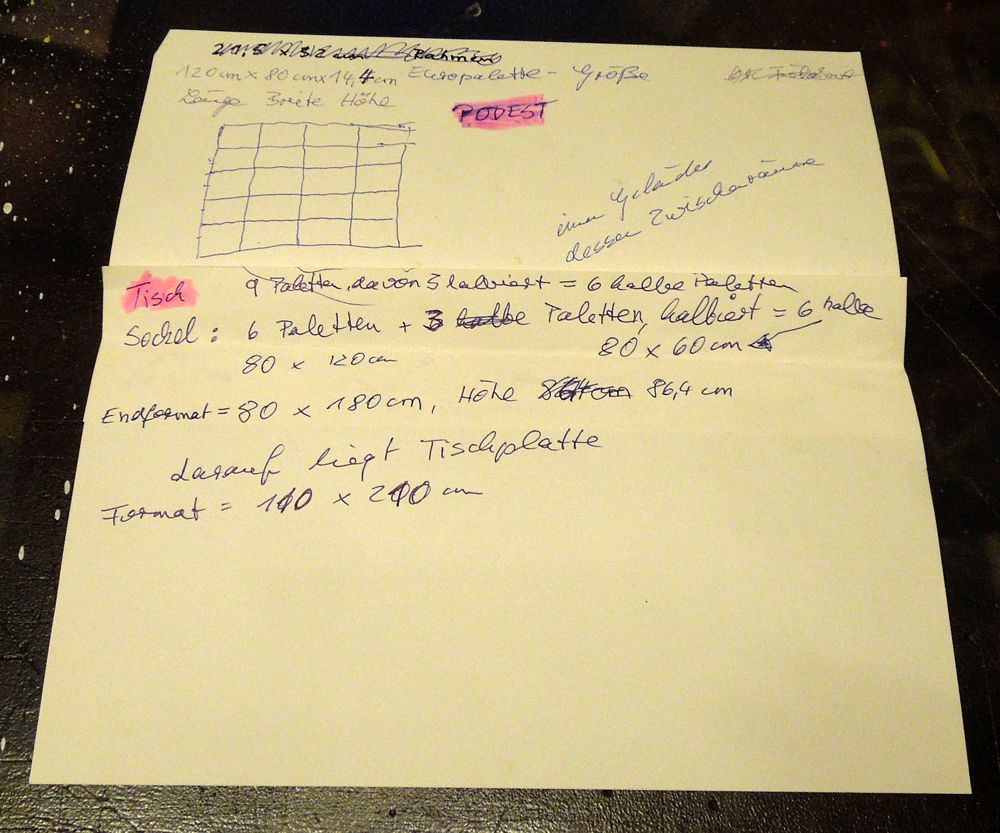 120cm x 80cm x 14,4cm Europalette - Größe
Länge Breite Höhe
PODEST
einer Geländer
dessen Zwischenräume
Tisch
9 Paletten, davon 3 halbiert = 6 halbe Paletten
Sockel: 6 Paletten + 3 Paletten, halbiert = 6 halbe
80 x 120cm
80 x 60cm
Endformat = 80 x 180cm, Höhe 86,4 cm
darauf liegt Tischplatte
Format = 110 x 210 cm